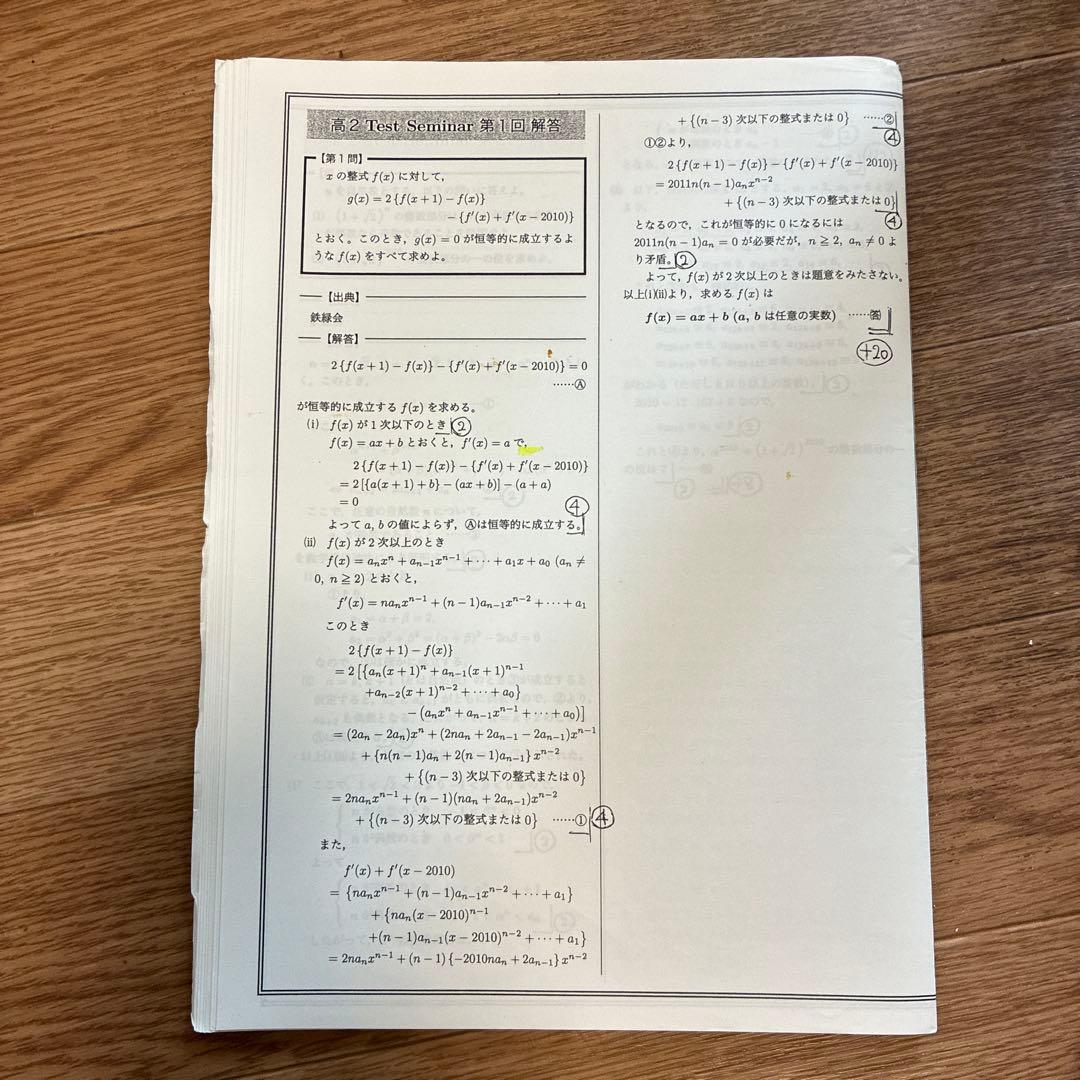 高2 Test Seminar 第1回 解答
【第1問】
x の整式 f(x) に対して,
g(x) = 2{f(x+1) − f(x)}
− {f′(x) + f′(x − 2010)}
とおく。このとき, g(x) = 0 が恒等的に成立するよ
うな f(x) をすべて求めよ。
【出典】
鉄緑会
【解答】
2{f(x+1) − f(x)} − {f′(x) + f′(x − 2010)} = 0
……Ⓐ
が恒等的に成立する f(x) を求める。
(i) f(x) が1次以下のとき ②
f(x) = ax + b とおくと, f′(x) = a で,
2{f(x+1) − f(x)} − {f′(x) + f′(x − 2010)}
= 2[{a(x+1) + b} − (ax + b)] − (a + a)
= 0
④
よって a, b の値によらず, Ⓐは恒等的に成立する。
(ii) f(x) が2次以上のとき
f(x) = aₙxⁿ + aₙ₋₁xⁿ⁻¹ + ··· + a₁x + a₀ (aₙ ≠
0, n ≧ 2) とおくと,
f′(x) = naₙxⁿ⁻¹ + (n−1)aₙ₋₁xⁿ⁻² + ··· + a₁
このとき
2{f(x+1) − f(x)}
= 2[{aₙ(x+1)ⁿ + aₙ₋₁(x+1)ⁿ⁻¹
+aₙ₋₂(x+1)ⁿ⁻² + ··· + a₀}
− (aₙxⁿ + aₙ₋₁xⁿ⁻¹ + ··· + a₀)]
= (2aₙ − 2aₙ)xⁿ + (2naₙ + 2aₙ₋₁ − 2aₙ₋₁)xⁿ⁻¹
+ {n(n−1)aₙ + 2(n−1)aₙ₋₁}xⁿ⁻²
+ {(n−3) 次以下の整式または 0}
= 2naₙxⁿ⁻¹ + (n−1)(naₙ + 2aₙ₋₁)xⁿ⁻²
+ {(n−3) 次以下の整式または 0} ……① ④
また,
f′(x) + f′(x − 2010)
= {naₙxⁿ⁻¹ + (n−1)aₙ₋₁xⁿ⁻² + ··· + a₁}
+ {naₙ(x − 2010)ⁿ⁻¹
+(n−1)aₙ₋₁(x − 2010)ⁿ⁻² + ··· + a₁}
= 2naₙxⁿ⁻¹ + (n−1){−2010naₙ + 2aₙ₋₁}xⁿ⁻²
+ {(n−3) 次以下の整式または 0} ……②
④
①②より,
2{f(x+1) − f(x)} − {f′(x) + f′(x − 2010)}
= 2011n(n−1)aₙxⁿ⁻²
+ {(n−3) 次以下の整式または 0}
④
となるので, これが恒等的に 0 になるには
2011n(n−1)aₙ = 0 が必要だが, n ≧ 2, aₙ ≠ 0 よ
り矛盾。 ②
よって, f(x) が2次以上のときは題意をみたさない。
以上(i)(ii)より, 求める f(x) は
f(x) = ax + b (a, b は任意の実数) ……答
+20